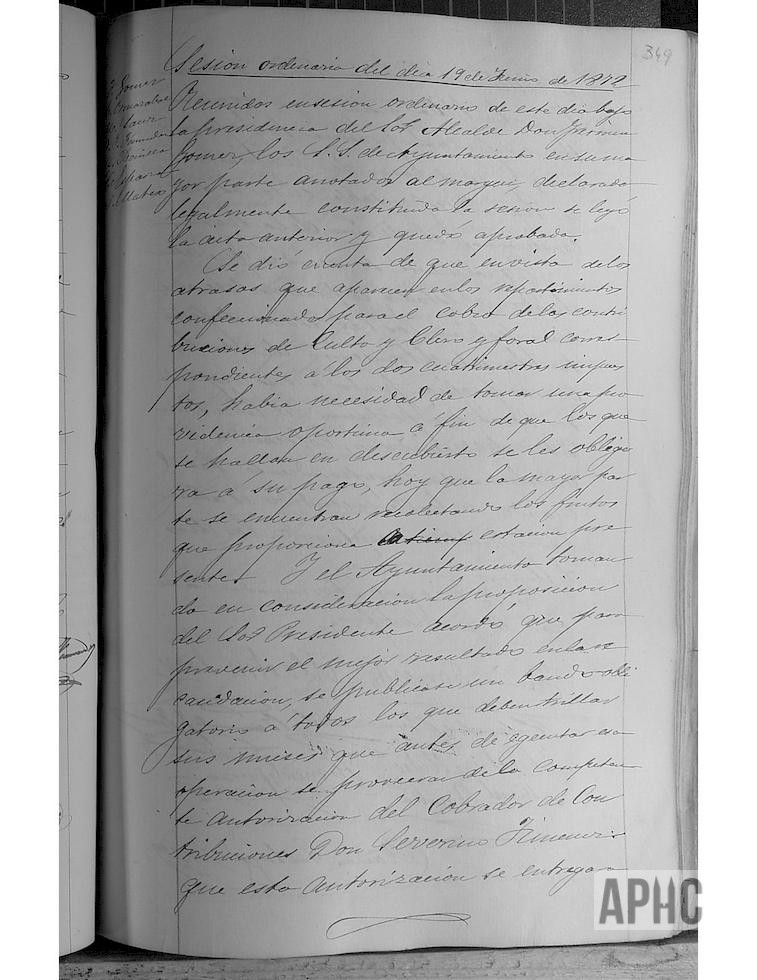 349
Sesion ordinaria del dia 19 de Junio de 1842
Gomez
Sanz
España
Mateo
Reunidos en sesion ordinaria de este dia bajo
la presidencia del Sor Alcalde Don
Gomez, los S.S. de Ayuntamiento en su ma
yor parte anotados al margen, declarada
legalmente constituida la sesion se leyó
la acta anterior y quedó aprobada.
Se dió cuenta de que en vista de los
atrasos que aparecen en los repartimientos
confeccionados para el cobro de las contri
buciones de Culto y Clero y foral corres
pondientes a los dos cuatrimestres impues
tos, habia necesidad de tomar una pro
videncia oportuna á fin de que los que
se hallan en descubierto se les obliga
ra á su pago, hoy que la mayor par
te se encuentran recolectando los frutos
que proporciona estacion pre
sente. Y el Ayuntamiento toman
do en consideracion la proposicion
del Sor Presidente acordó que para
prevenir el mejor resultado en la re
caudacion, se publicase un bando obli
gatorio á todos los que deben trillar
sus mieses que antes de egecutar esa
operacion se provean de la competen
te autorizacion del Cobrador de Con
tribuciones Don Severino Jimenez
que esta autorizacion se entregara
APHC